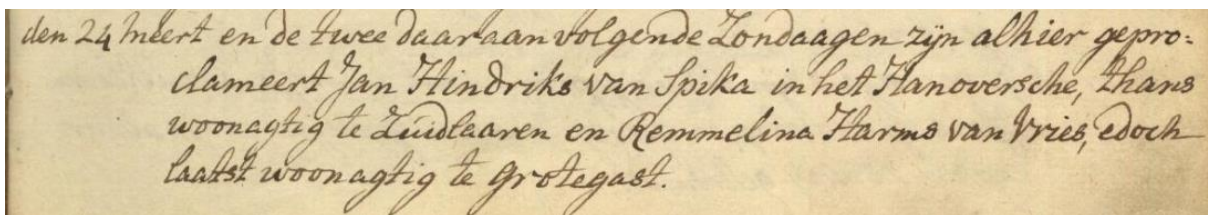 den 24 Meert en de twee daaraanvolgende Zondaagen zijn alhier gepro=
clameert Jan Hindriks van Spika in het Hanoversche, thans
woonagtig te Zuidlaaren en Remmelina Harms van Vries, edoch
laatst woonagtig te Grotegast.